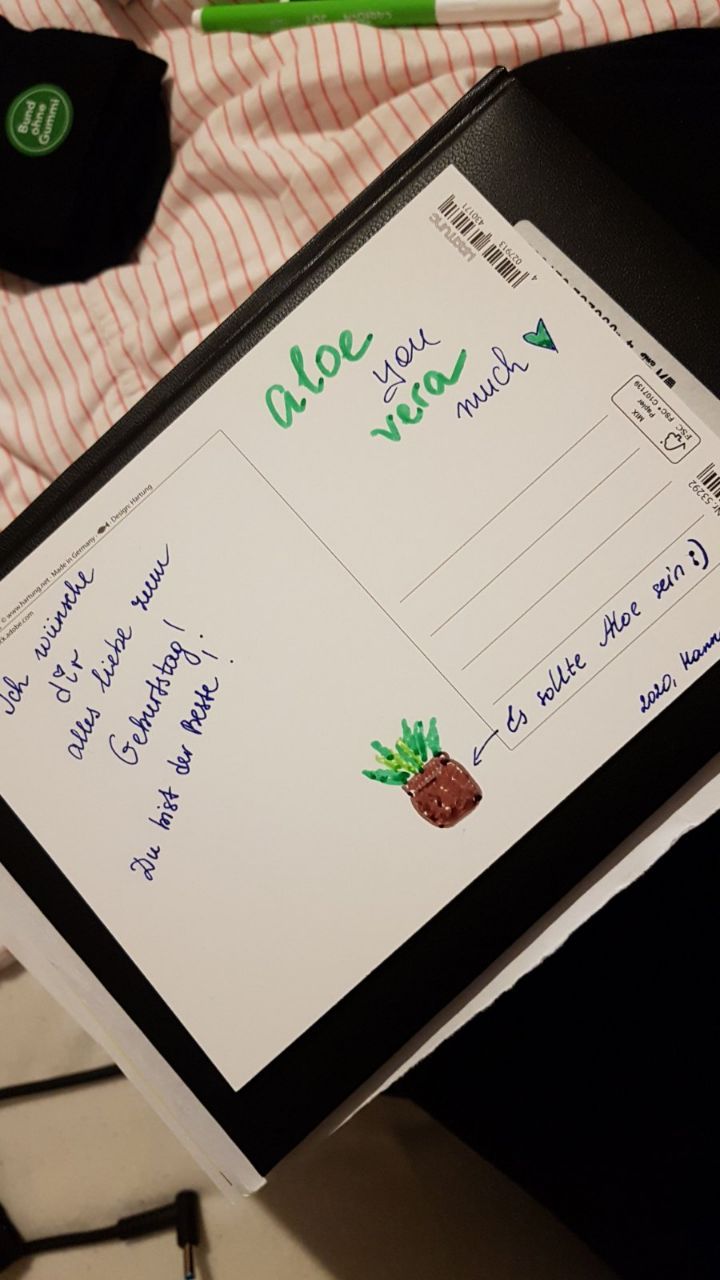 CARBON JOY
Bund
ohne
Gummi
HARTUNG
4 027913 430171
aloe
you
vera
much
MIX
Papier
FSC® C107139
FSC
Nr. 53292
© www.hartung.net · Made in Germany · Design: Hartung
ck.adobe.com
Ich wünsche
dir
alles liebe zum
Geburtstag!
Du bist der Beste!
Es sollte Aloe sein :)
2020, Hann